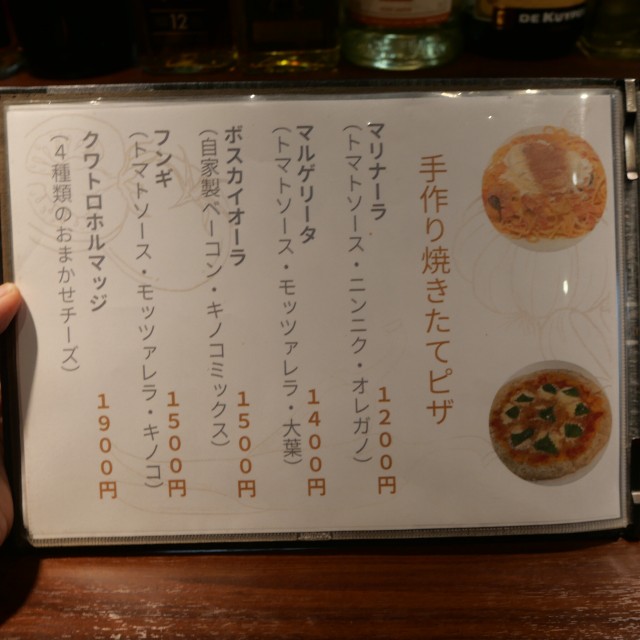 12
DE KUYPER
手作り焼きたてピザ
マリナーラ 1200円
(トマトソース・ニンニク・オレガノ)
マルゲリータ 1400円
(トマトソース・モッツァレラ・大葉)
ボスカイオーラ 1500円
(自家製ベーコン・キノコミックス)
フンギ 1500円
(トマトソース・モッツァレラ・キノコ)
クワトロホルマッジ 1900円
(4種類のおまかせチーズ)